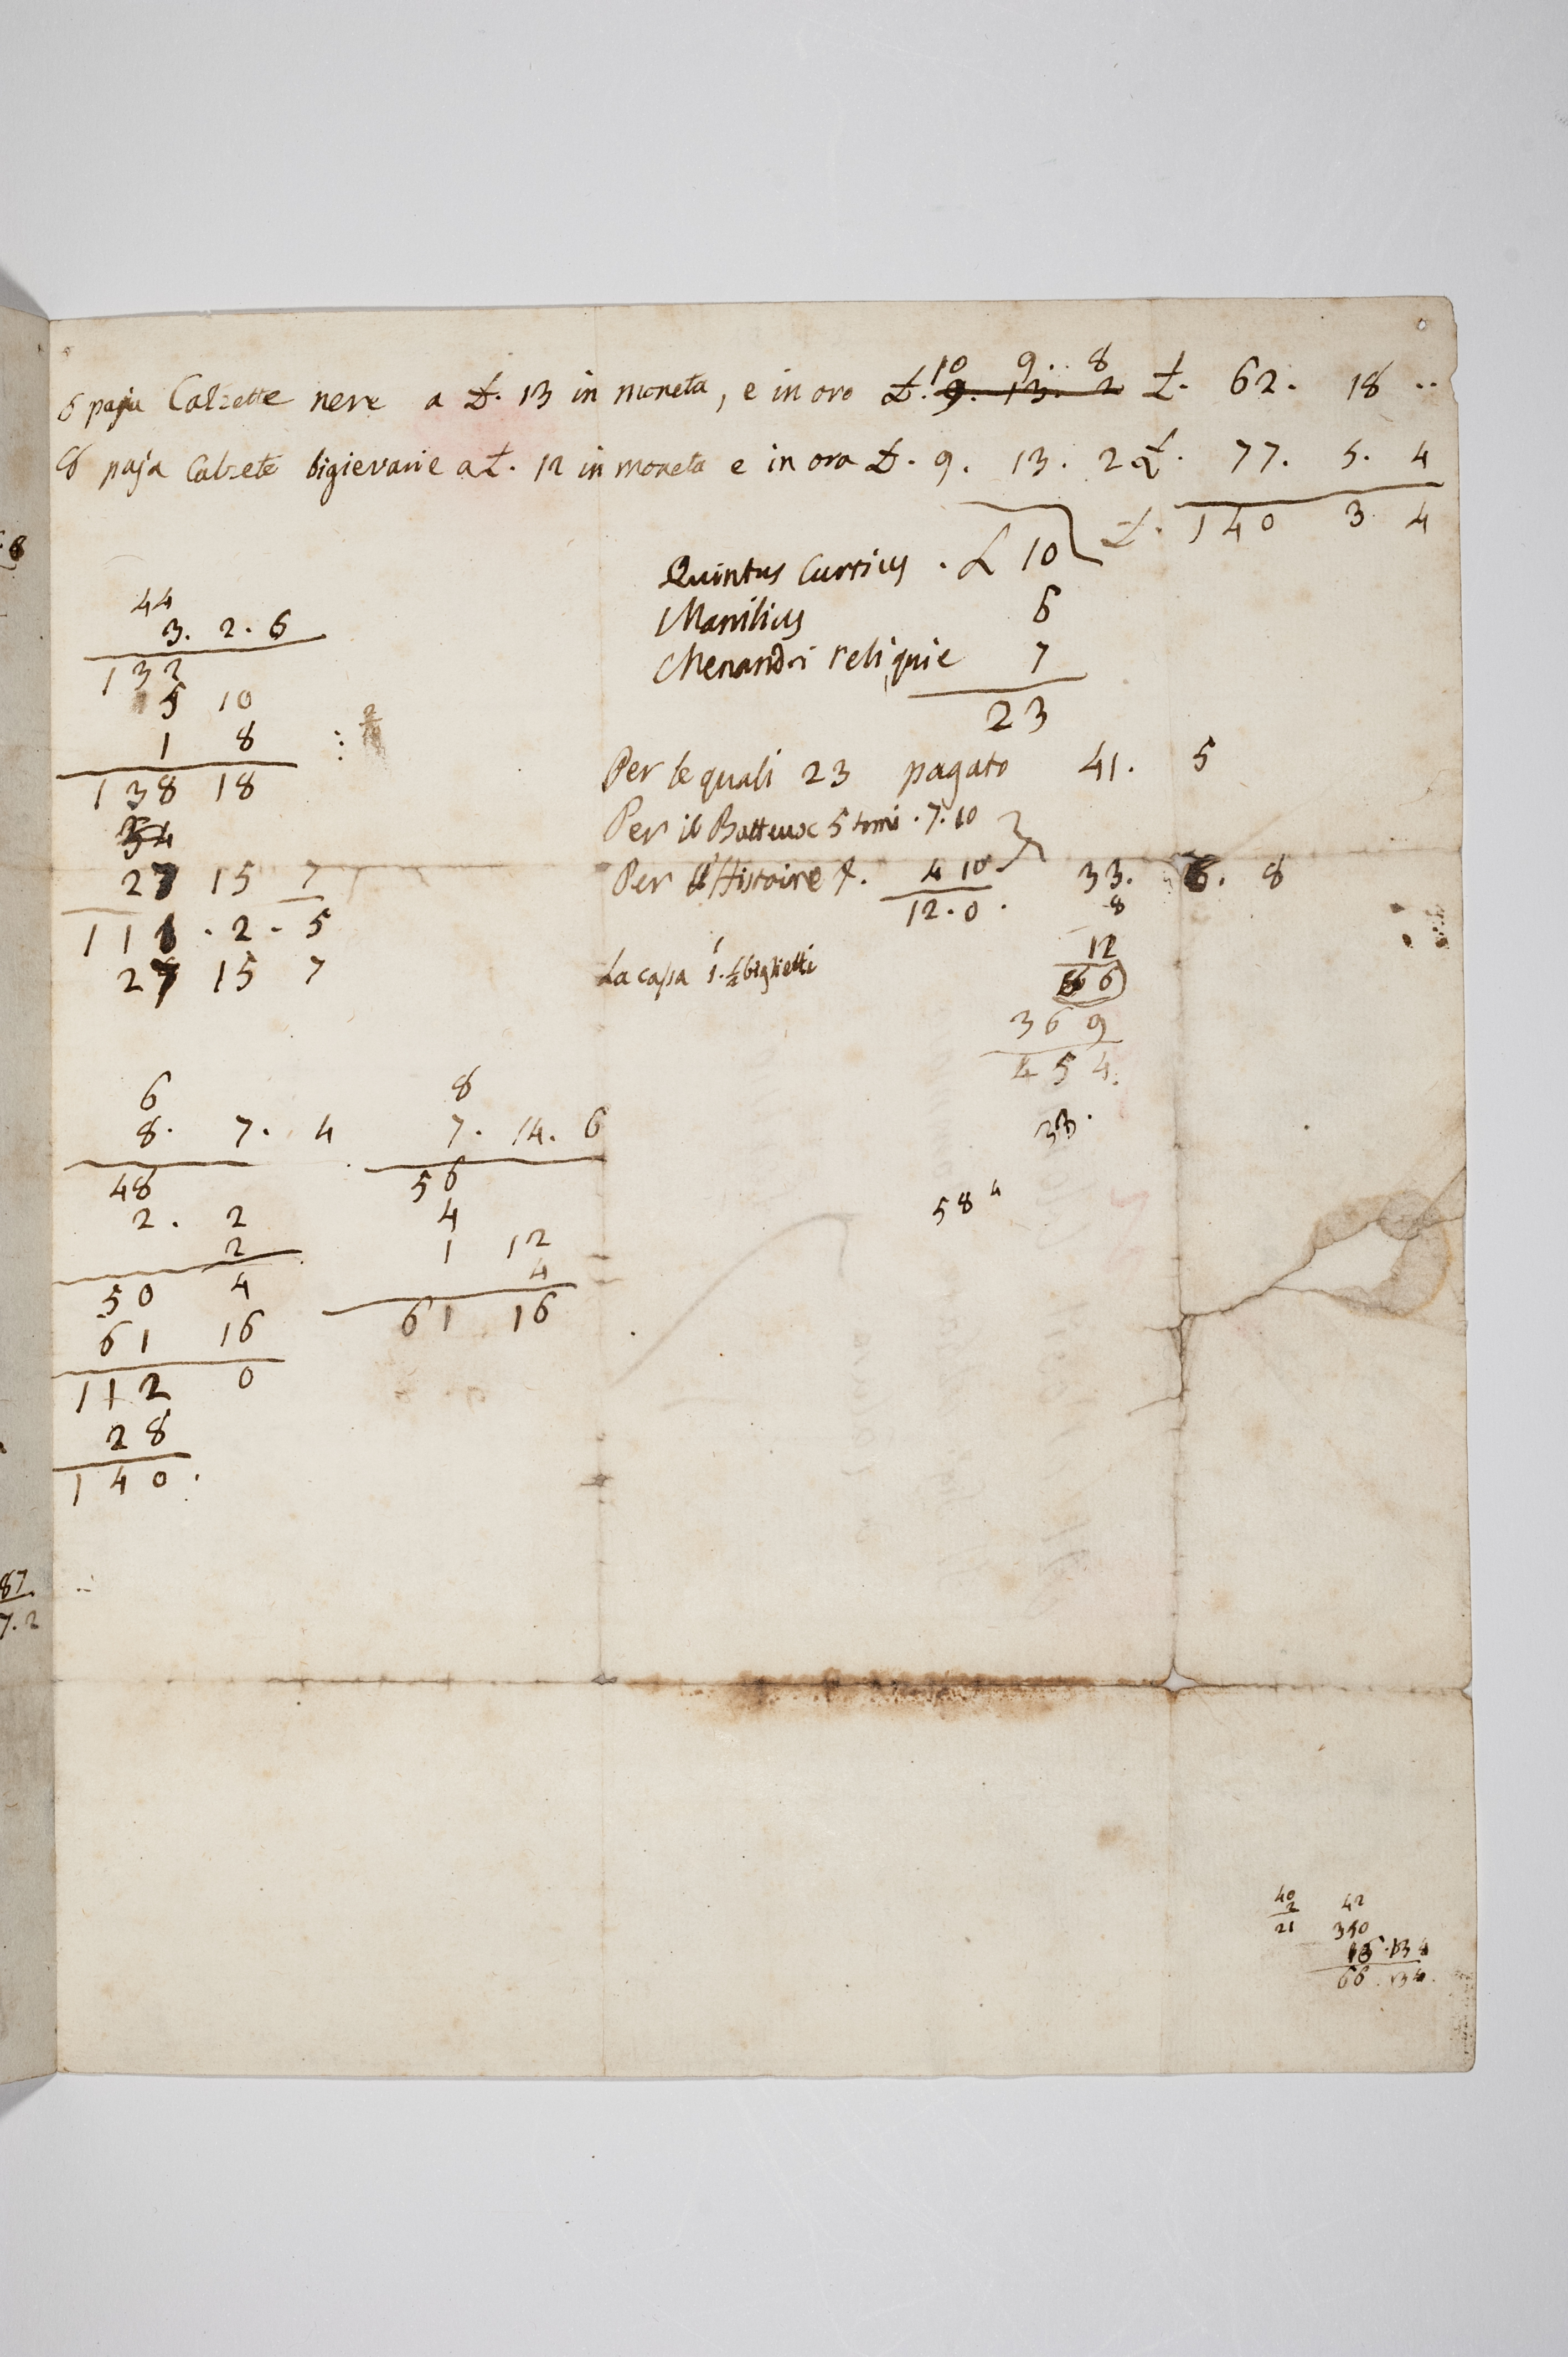 10 9.. 8
6 paja Calzette nere a £. 13 in moneta, e in oro £. 9. 13. 2 £. 62. 18 ..
8 paja Calzete bigierarie a £. 12 in moneta e in oro £. 9. 13. 2 £. 77. 5. 4
£. 140 3 4
Quintus Curtius . £ 10
Manilius 6
Menandri reliquie 7
23
Per le quali 23 pagato 41. 5
Per il Batteux 5 tomi . 7. 10
Per l'Histoire 4 10 33. 6. 8
12. 0. 8
La cassa 1. biglietti 12
66
369
454.
33.
58 4
44
3. 2. 6
132
5 10
1 8
138 18
34
27 15 7
111 . 2 . 5
27 15 7
6
8. 7. 4
48
2. 2
2
50 4
61 16
112 0
28
140.
8
7. 14. 6
56
4
1 12
4
61 16
8
87.
7. 2
40
2
21
42
350
66